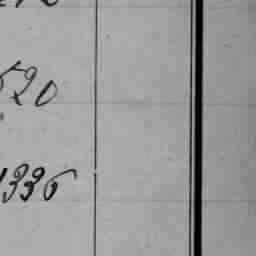 520
1336